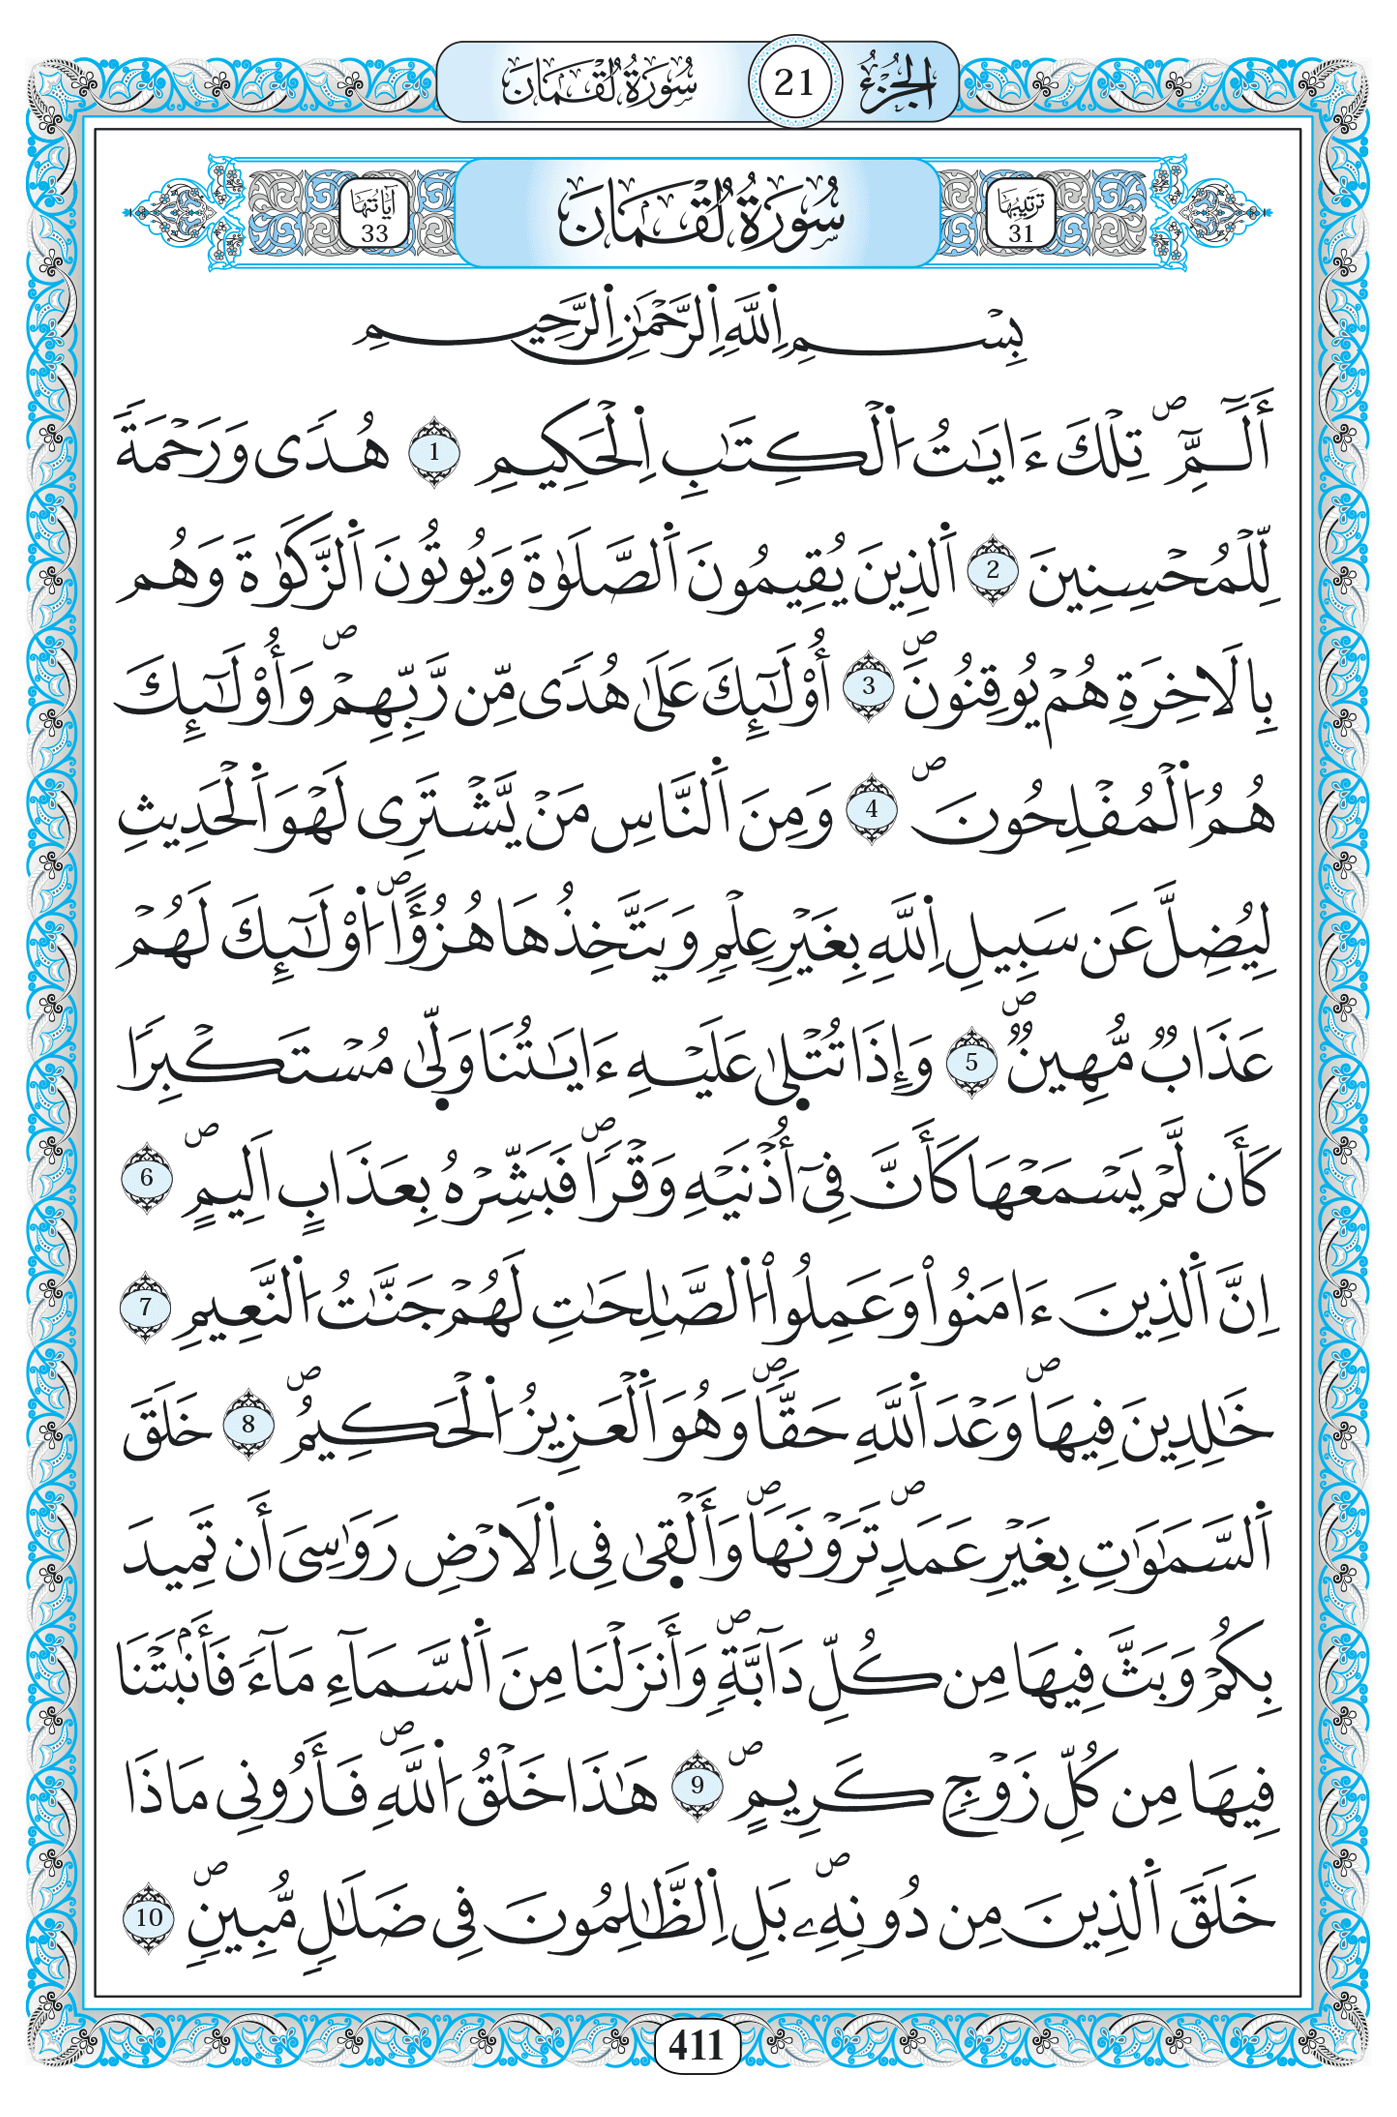 الجزء 21 سورة لقمان
ترتيبها 31 سُورَةُ لُقْمَانَ آياتها 33
بِسْمِ اِ۬للَّهِ اِ۬لرَّحْمَٰنِ اِ۬لرَّحِيمِ
أَلَٓمِّٓۖ تِلْكَ ءَايَٰتُ اُ۬لْكِتَٰبِ اِ۬لْحَكِيمِ 1 هُدٗى وَرَحْمَةٗ
لِّلْمُحْسِنِينَ 2 اَ۬لذِينَ يُقِيمُونَ اَ۬لصَّلَوٰةَ وَيُوتُونَ اَ۬لزَّكَوٰةَ وَهُم
بِالَاخِرَةِ هُمْ يُوقِنُونَۖ 3 أُوْلَٰٓئِكَ عَلَىٰ هُدٗى مِّن رَّبِّهِمْۖ وَأُوْلَٰٓئِكَ
هُمُ اُ۬لْمُفْلِحُونَۖ 4 وَمِنَ اَ۬لنَّاسِ مَنْ يَّشْتَرِى لَهْوَ اَ۬لْحَدِيثِ
لِيُضِلَّ عَن سَبِيلِ اِ۬للَّهِ بِغَيْرِ عِلْمٖ وَيَتَّخِذُهَا هُزُؤاًۖ ا۟وْلَٰٓئِكَ لَهُمْ
عَذَابٞ مُّهِينٞۖ 5 وَإِذَا تُتْلَىٰ عَلَيْهِ ءَايَٰتُنَا وَلَّىٰ مُسْتَكْبِرٗا
كَأَن لَّمْ يَسْمَعْهَا كَأَنَّ فِىٓ أُذْنَيْهِ وَقْرٗاۖ فَبَشِّرْهُ بِعَذَابٍ اَلِيمٍۖ 6
اِنَّ اَ۬لذِينَ ءَامَنُواْ وَعَمِلُواْ اُ۬لصَّٰلِحَٰتِ لَهُمْ جَنَّٰتُ اُ۬لنَّعِيمِ 7
خَٰلِدِينَ فِيهَاۖ وَعْدَ اَ۬للَّهِ حَقّٗاۖ وَهُوَ اَ۬لْعَزِيزُ اُ۬لْحَكِيمُۖ 8 خَلَقَ
اَ۬لسَّمَٰوَٰتِ بِغَيْرِ عَمَدٖ تَرَوْنَهَاۖ وَأَلْقَىٰ فِى اِ۬لَارْضِ رَوَٰسِىَ أَن تَمِيدَ
بِكُمْ وَبَثَّ فِيهَا مِن كُلِّ دَآبَّةٖۖ وَأَنزَلْنَا مِنَ اَ۬لسَّمَآءِ مَآءٗ فَأَنۢبَتْنَا
فِيهَا مِن كُلِّ زَوْجٖ كَرِيمٍۖ 9 هَٰذَا خَلْقُ اُ۬للَّهِۖ فَأَرُونِى مَاذَا
خَلَقَ اَ۬لذِينَ مِن دُونِهِۦۖ بَلِ اِ۬لظَّٰلِمُونَ فِى ضَلَٰلٖ مُّبِينٖۖ 10
411